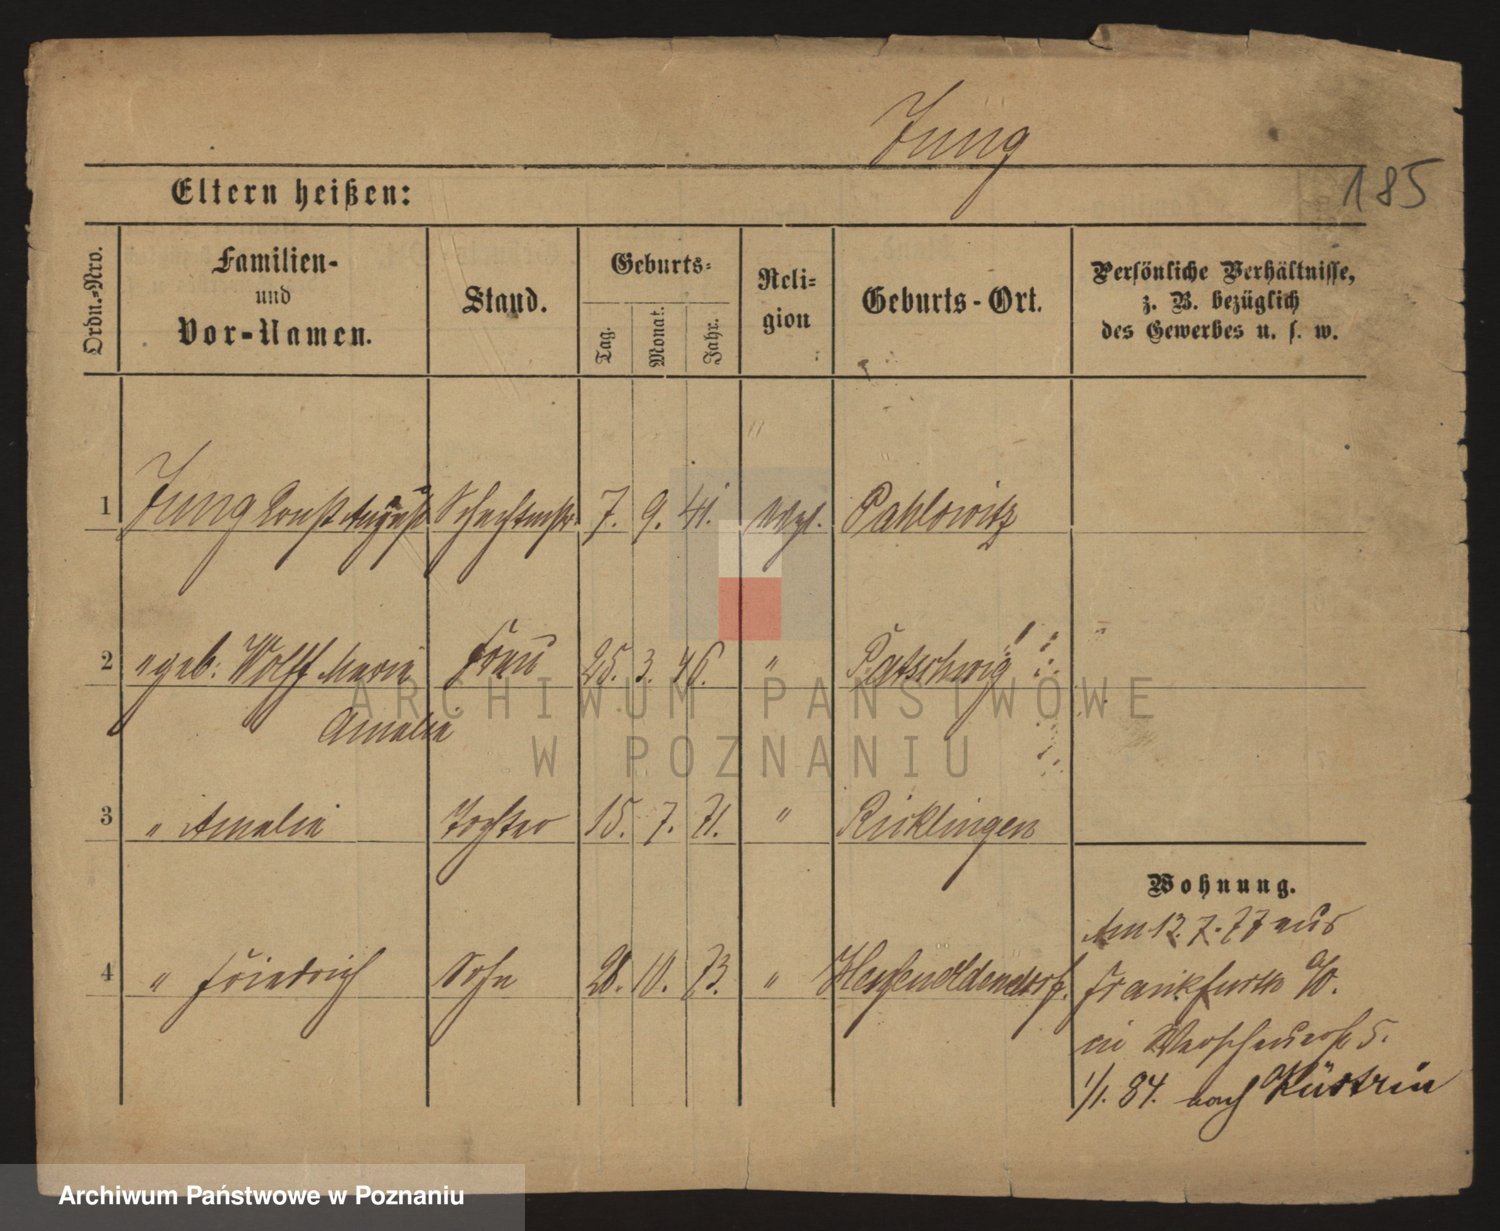 Jung
185
Eltern heißen:
Ordn.-Nro.
Familien-
und
Vor-Namen.
Stand.
Geburts-
Tag.
Monat.
Jahr.
Reli-
gion
Geburts-Ort.
Persönliche Verhältnisse,
z. B. bezüglich
des Gewerbes u. s. w.
1 Jung Ernst August Schachtmstr 7. 9. 41. evgl. Pahlowitz
2 " geb. Wolff Marie Frau 25. 3. 46. "
Amalie
3 " Amalie Tochter 15. 7. 71. " Ricklingen
Wohnung.
Am 12. 7. 77 aus
4 " Friedrich Sohn 28. 10. 73. "
Frankfurth a/O.
in 5.
1/1. 84. nach Küstrin
ARCHIWUM PAŃSTWOWE
W POZNANIU
Archiwum Państwowe w Poznaniu